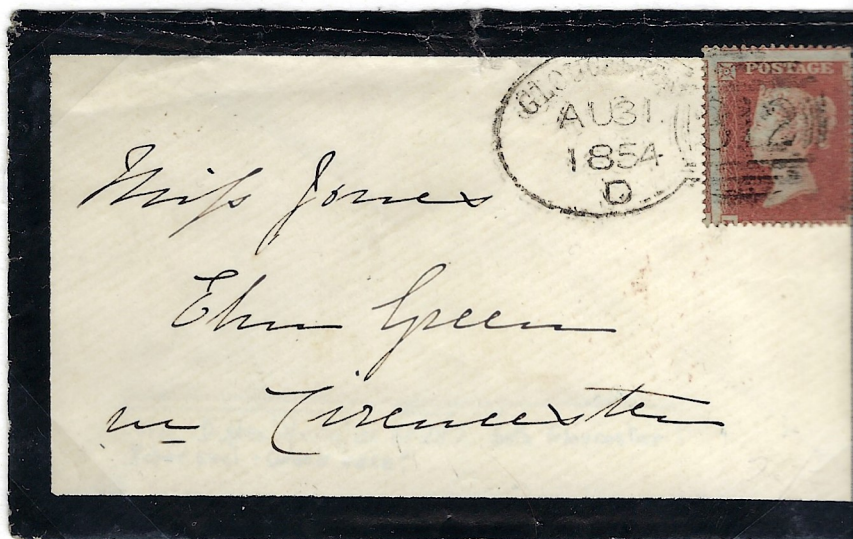 GLOUCESTER
AU 31
1854
D
312
POSTAGE
Miss Jones
Elm Green
nr Cirencester